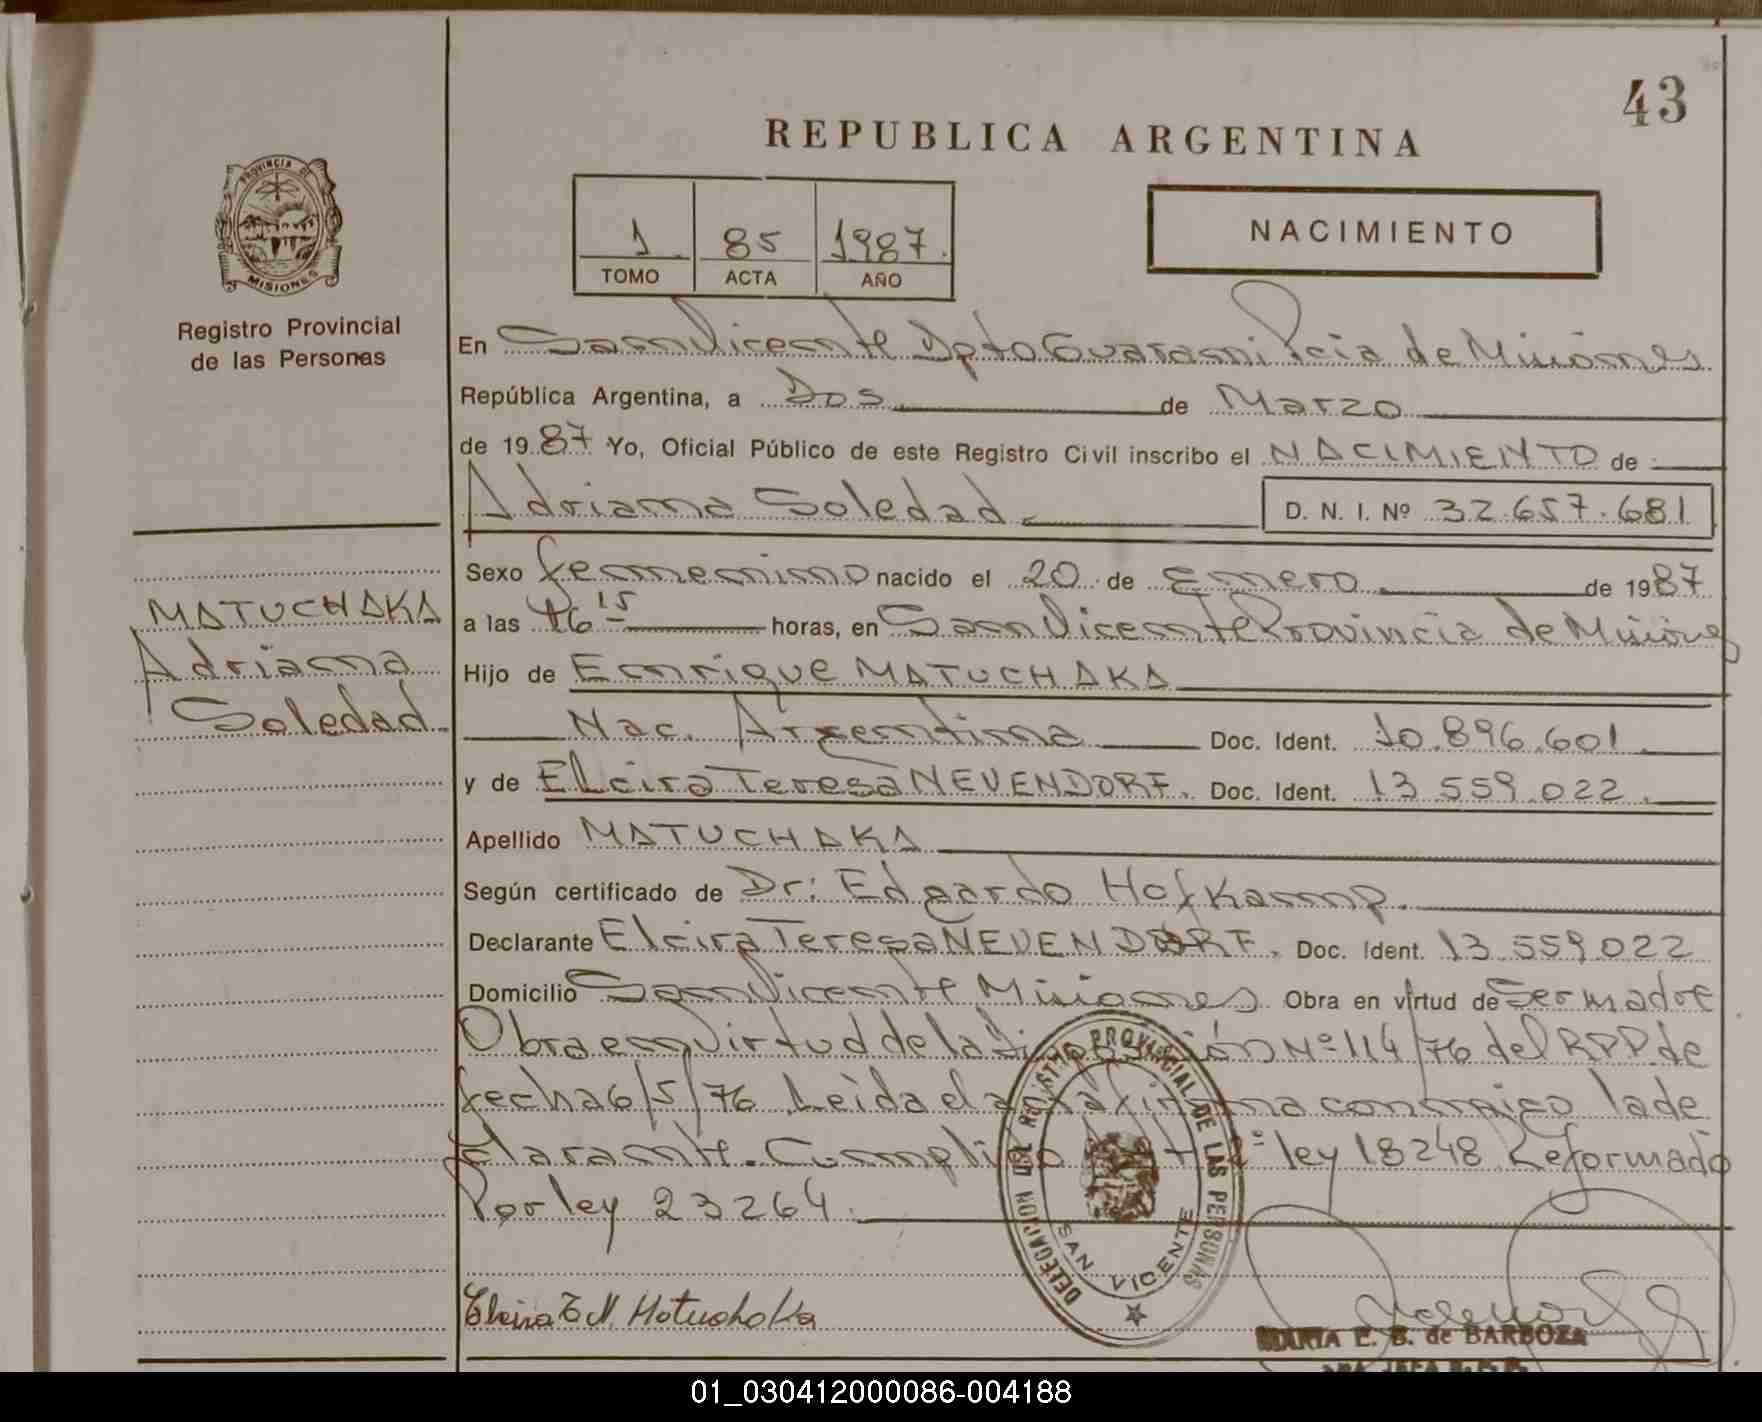 43
REPUBLICA ARGENTINA
PROVINCIA DE
MISIONES
1 85 1987.
TOMO ACTA AÑO
NACIMIENTO
Registro Provincial
de las Personas
En San Vicente Dpto Guarani Pcia de Misiones
República Argentina, a Dos de Marzo
de 1987 Yo, Oficial Público de este Registro Civil inscribo el NACIMIENTO de
Adriana Soledad. D. N. I. Nº 32.657.681
Sexo femenino nacido el 20 de Enero de 1987
a las 16 15 horas, en San Vicente Provincia de Misiones
Hijo de Enrique MATUCHAKA
Nac. Argentina Doc. Ident. 10.896.601
y de Elcira Teresa NEUENDORF. Doc. Ident. 13.559.022.
Apellido MATUCHAKA
Según certificado de Dr: Edgardo Hofkamp.
Declarante Elcira Teresa NEUENDORF. Doc. Ident. 13.559.022
Domicilio San Vicente Misiones. Obra en virtud de Ser madre
Obra en virtud de la Nº 114/76 del RPP de
fecha 6/5/76 Leida el acta firma conmigo la de
clarante. ley 18248 Reformado
Por ley 23264.
MATUCHAKA
Adriana
Soledad.
DELEGACION DEL REGISTRO PROVINCIAL DE LAS PERSONAS
SAN VICENTE
Elcira T N. Matuchaka
MARIA E. B. de BARBOZA
01_030412000086-004188